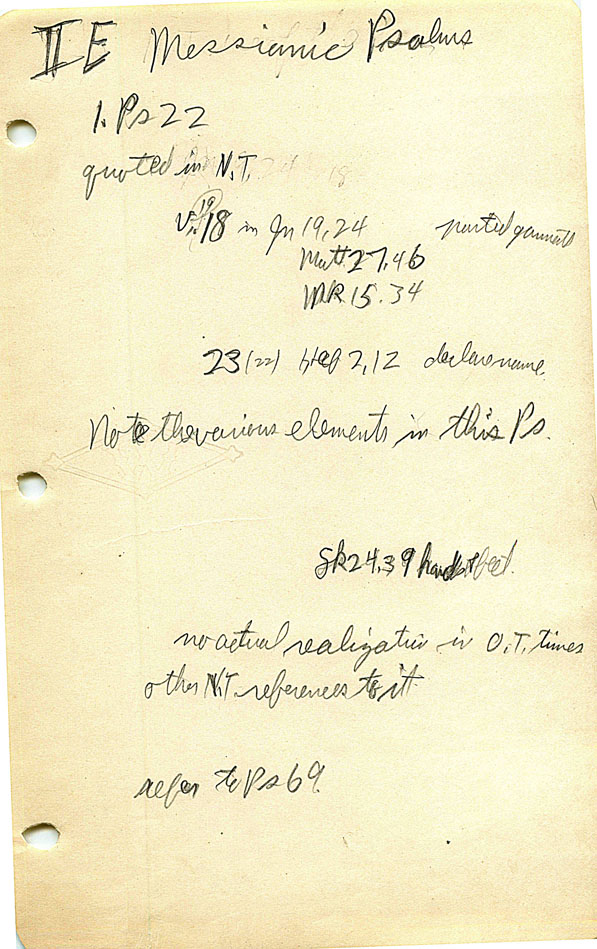 II E Messianic Psalms
1. Ps 22
quoted in N.T.
19
v. 18 in Jn 19,24 parted garments
Matt 27.46
MR 15.34
23 (22) Heb 2,12 declare name.
Note the various elements in this Ps.
Lk 24,39 hands & feet.
no actual realization in O.T. times
other N.T. references to it
refer to Ps 69.